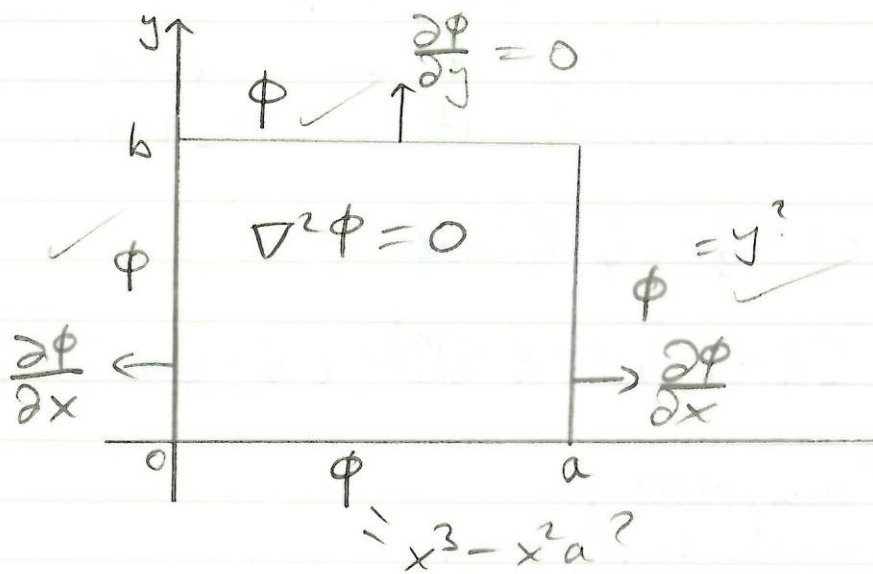 y
∂φ/∂y = 0
φ ✓
b
∇²φ = 0
✓ φ
φ = y² ✓
∂φ/∂x
∂φ/∂x
0
φ
a
= x³ - x²a ?